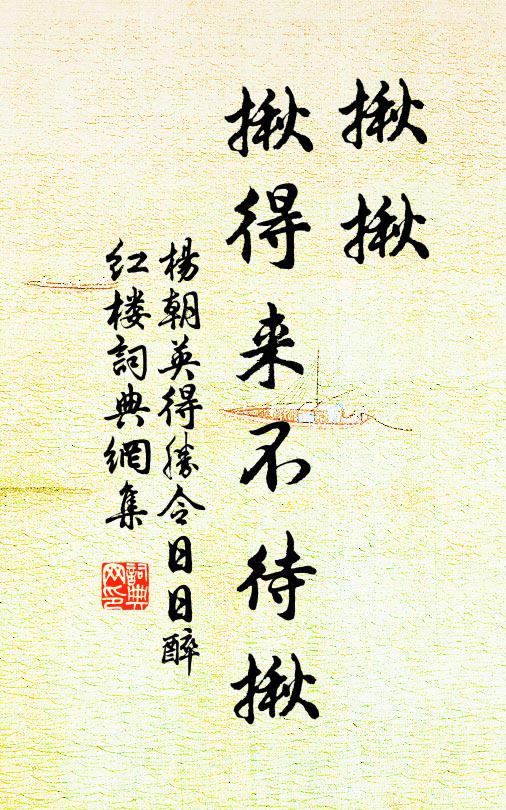 揪揪
揪得来不待揪
杨朝英得勝令日日醉
红楼詞典網集
詞典
网印